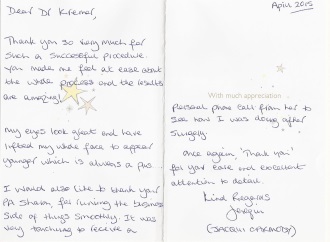 Dear Dr Kremer,
Thank you so very much for
such a successful procedure.
you made me feel at ease about
the whole process and the results
are amazing!
my eyes look great and have
lifted my whole face to appear
younger which is always a plus...
I would also like to thank your
PA Sharon, for running the business
side of things smoothly. It was
very touching to receive a
April 2015
With much appreciation
personal phone call from her to
see how I was doing after
surgery.
once again, 'Thank you'
for your ease and
attention to detail.
Kind Regards
Jacqui
(JACQUI